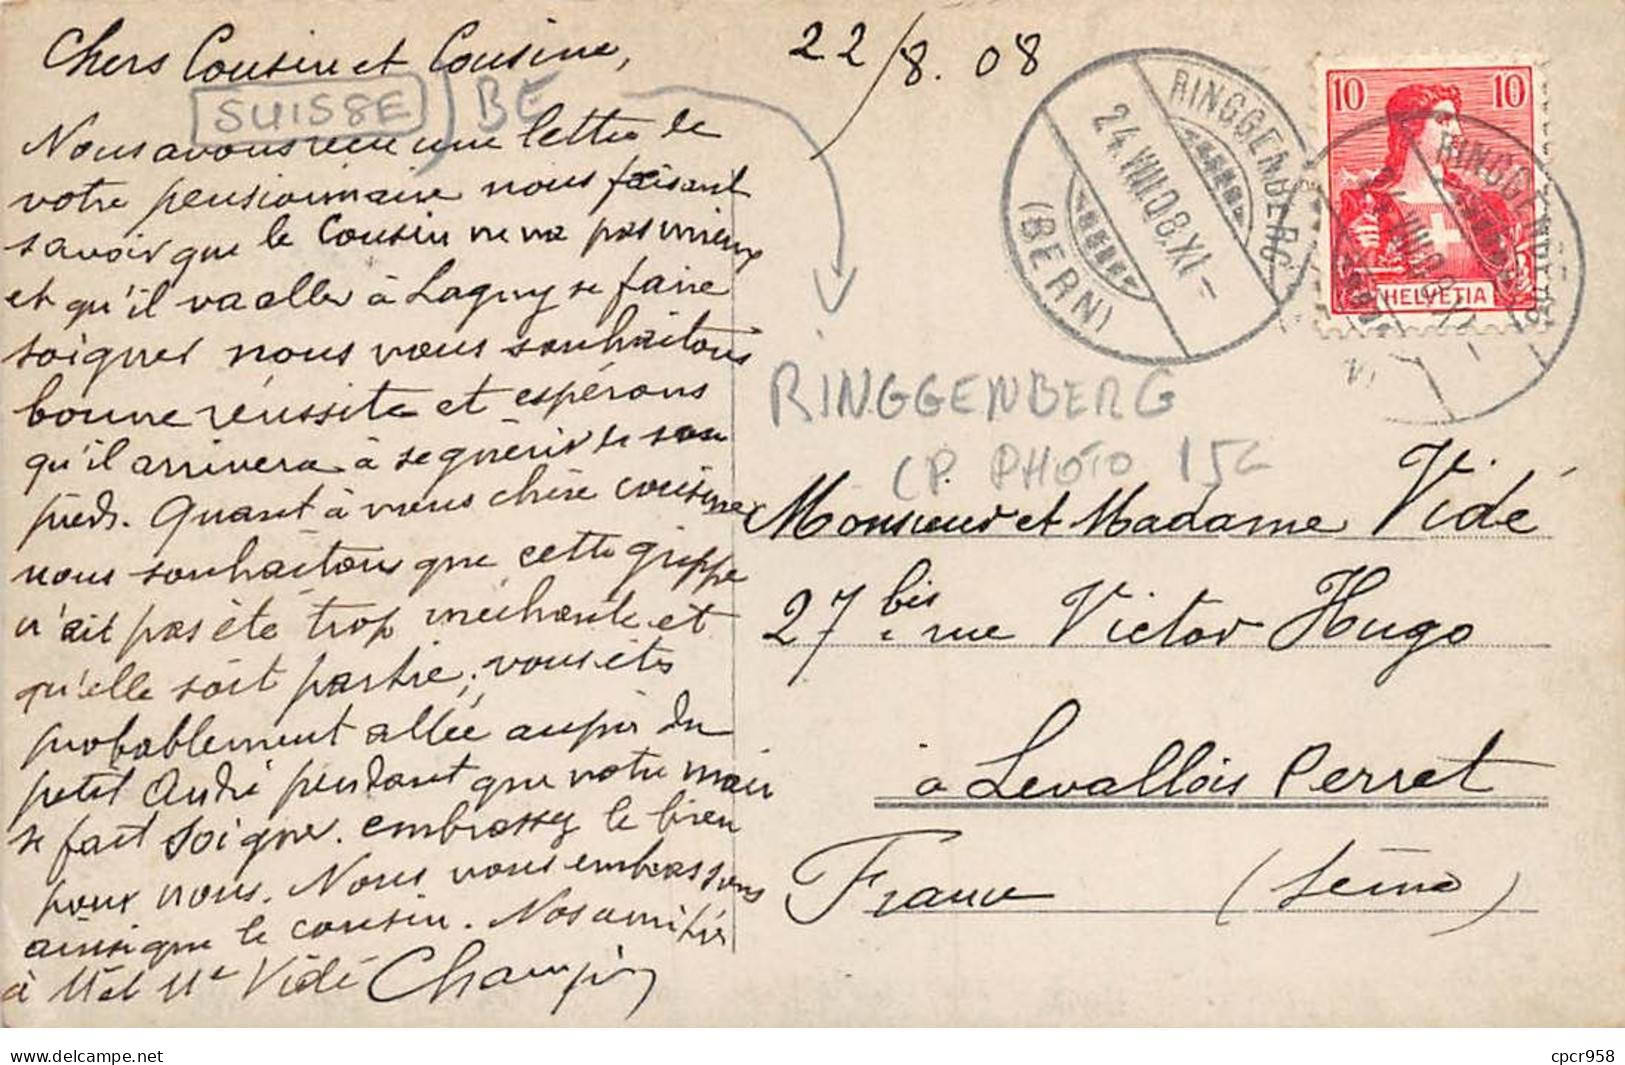 Chers Cousin et Cousine,
22/8. 08
SUISSE BE
Nous avons reçu une lettre de
votre pensionnaire nous faisant
savoir que le Cousin ne va pas mieux
et qu'il va aller à Lagny se faire
soigner nous vous souhaitons
bonne réussite et espérons
qu'il arrivera à se guérir de son
pieds. Quant à vous chère cousine
nous souhaitons que cette grippe
n'ait pas été trop méchante et
qu'elle soit partie, vous êtes
probablement allée auprès du
petit André pendant que votre mari
se fait soigner. embrassez le bien
pour nous. Nous vous embrassons
ainsi que le cousin. Nos amitiés
à Mr et Me Vidé
RINGGENBERG
(BERN)
24.VIII.08.XI-
RINGGENBERG
10 10
HELVETIA
RINGGENBERG
CP. PHOTO 15€
Monsieur et Madame Vidé
27 bis rue Victor Hugo
à Levallois Perret
France (Seine)
www.delcampe.net
cpcr958